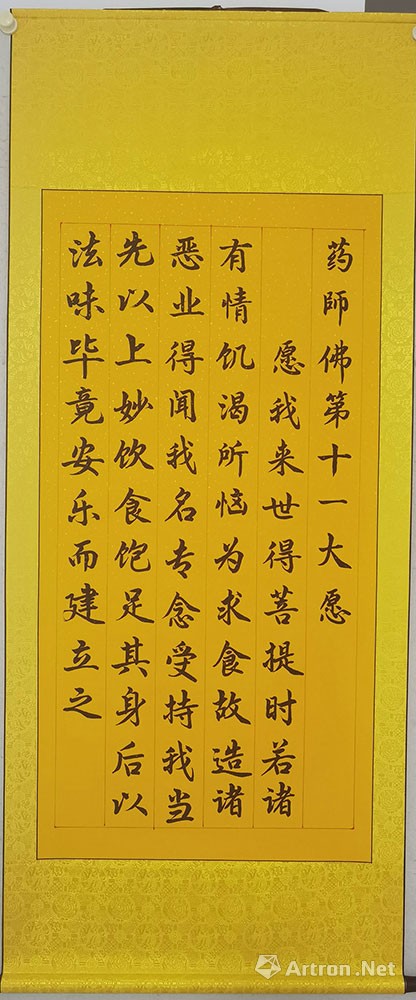 药師佛第十一大愿
愿我来世得菩提时若诸
有情饥渴所恼为求食故造诸
恶业得闻我名专念受持我当
先以上妙饮食饱足其身后以
法味毕竟安乐而建立之
Artron.Net